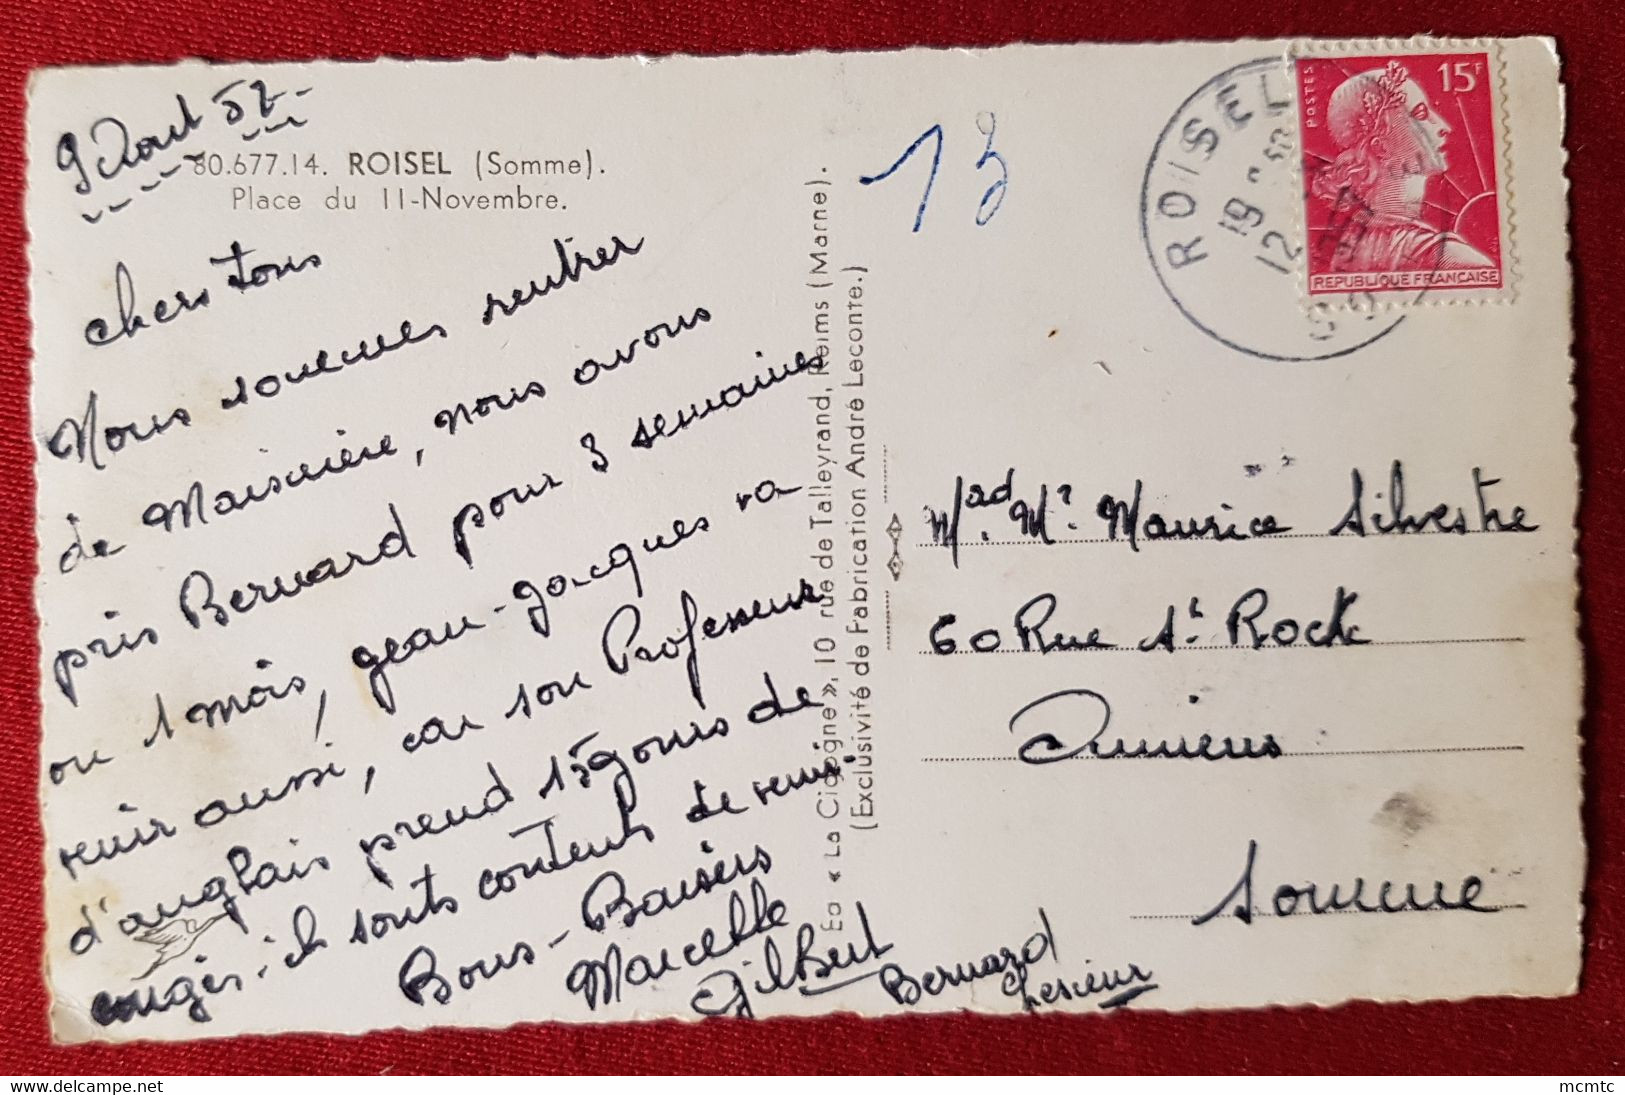 9 Aout 57
80.677.14. ROISEL (Somme).
Place du 11-Novembre.
chers tous
Nous sommes rentrer
de Maisnière, nous avons
pris Bernard pour 3 semaines
ou 1 mois, jean-jacques va
venir aussi, car son Professeur
d'anglais prend 15 jours de
congés. ils sonts contents de venir.
Bons-Baisers
Marcelle
Gilbert
Bernard
Lesieur
Ed. « La Cigogne », 10 rue de Talleyrand, Reims (Marne).
(Exclusivité de Fabrication André Leconte.)
13
ROISEL
19
12
1957
SOMME
POSTES
15F
REPUBLIQUE FRANCAISE
Mad. Mr. Maurice Silvestre
60 Rue St Rock
Amiens
Somme
mcmtc